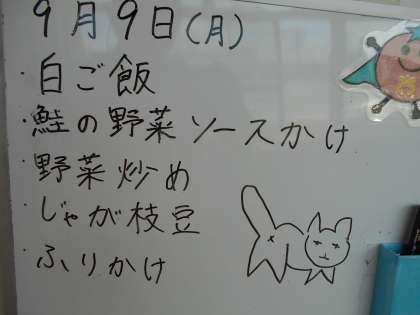 9月9日(月)
・白ご飯
・鮭の野菜ソースかけ
・野菜炒め
・じゃが枝豆
・ふりかけ